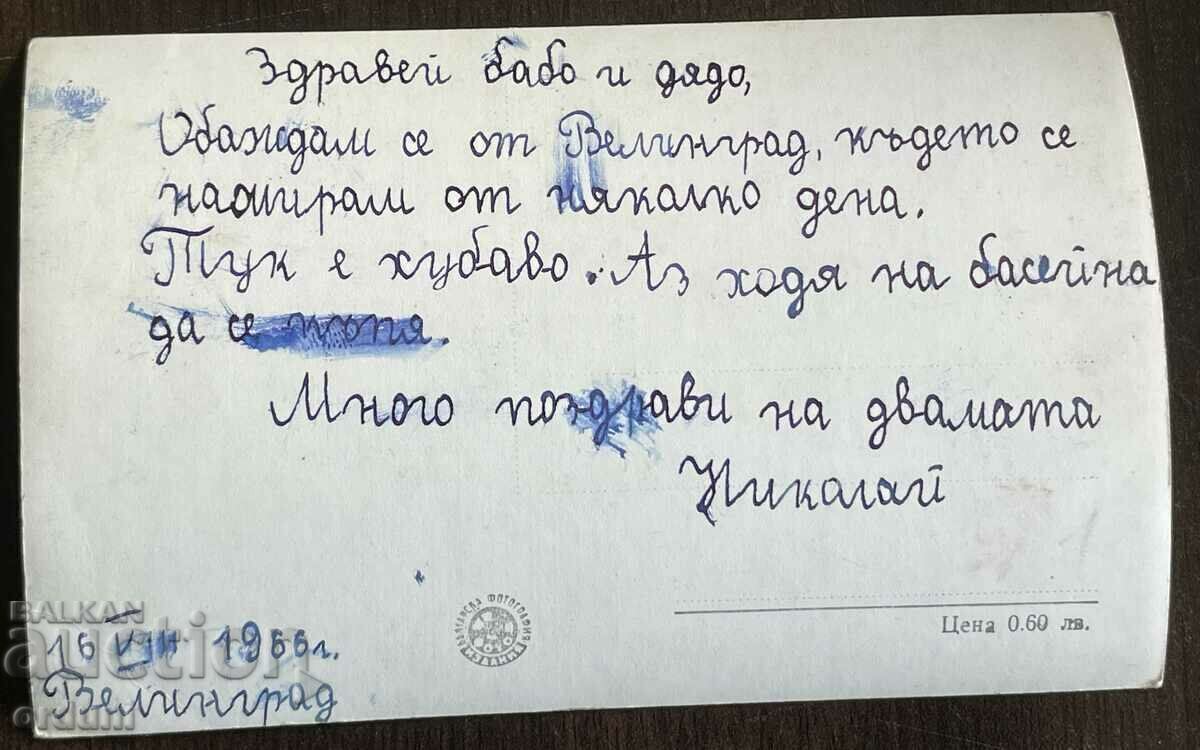 Здравей бабо и дядо,
Обаждам се от Велинград, където се
намирам от няколко дена.
Тук е хубаво. Аз ходя на басейна
да се къпя.
Много поздрави на двамата
Николай
Цена 0.60 лв.
БЪЛГАРСКА ФОТОГРАФИЯ
ИЗДАНИЕ
16 VIII 1966 г.
Велинград
BALKAN
auction